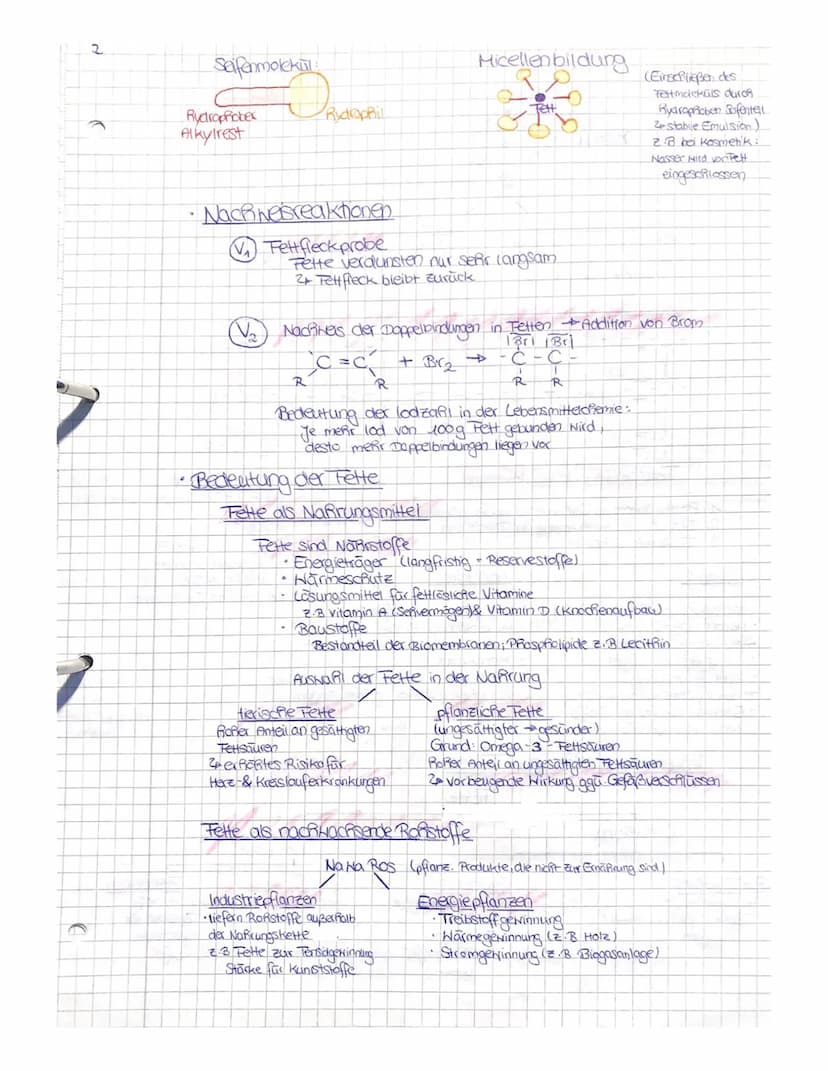 2
Seifenmolekül:
Hydrophober
Alkylrest
Hydrophil
Micellenbildung
Fett
(Einschließen des
Fettmoleküls durch
Hydrophoben Seifenteil
↳ stabile Emulsion)
z.B bei Kosmetik:
Wasser wird von Fett
eingeschlossen
· Nachweisreaktionen
V1 Fettfleckprobe
Fette verdunsten nur sehr langsam
↳ Fettfleck bleibt zurück
V2 Nachweis der Doppelbindungen in Fetten → Addition von Brom
|Br| |Br|
C = C + Br2 → - C - C -
R R R R
Bedeutung der Iodzahl in der Lebensmittelchemie:
Je mehr Iod von 100g Fett gebunden wird,
desto mehr Doppelbindungen liegen vor
· Bedeutung der Fette
Fette als Nahrungsmittel
Fette sind Nährstoffe
· Energieträger (langfristig - Reservestoffe)
· Wärmeschutz
· Lösungsmittel für fettlösliche Vitamine
z.B Vitamin A (Sehvermögen) & Vitamin D (Knochenaufbau)
· Baustoffe
Bestandteil der Biomembranen; Phospholipide z.B Lecithin
Auswahl der Fette in der Nahrung
tierische Fette
hoher Anteil an gesättigten
Fettsäuren
↳ erhöhtes Risiko für
Herz- & Kreislauferkrankungen
pflanzliche Fette
(ungesättigter → gesünder)
Grund: Omega-3-Fettsäuren
hoher Anteil an ungesättigten Fettsäuren
↳ vorbeugende Wirkung ggü. Gefäßverschlüssen
Fette als nachwachsende Rohstoffe
NaWaRos (pflanz. Produkte, die nicht zur Ernährung sind)
Industriepflanzen
· liefern Rohstoffe außerhalb
der Nahrungskette
z.B Fette zur Tensidgewinnung
Stärke für Kunststoffe
Energiepflanzen
· Treibstoffgewinnung
· Wärmegewinnung (z.B Holz)
· Stromgewinnung (z.B Biogasanlage)